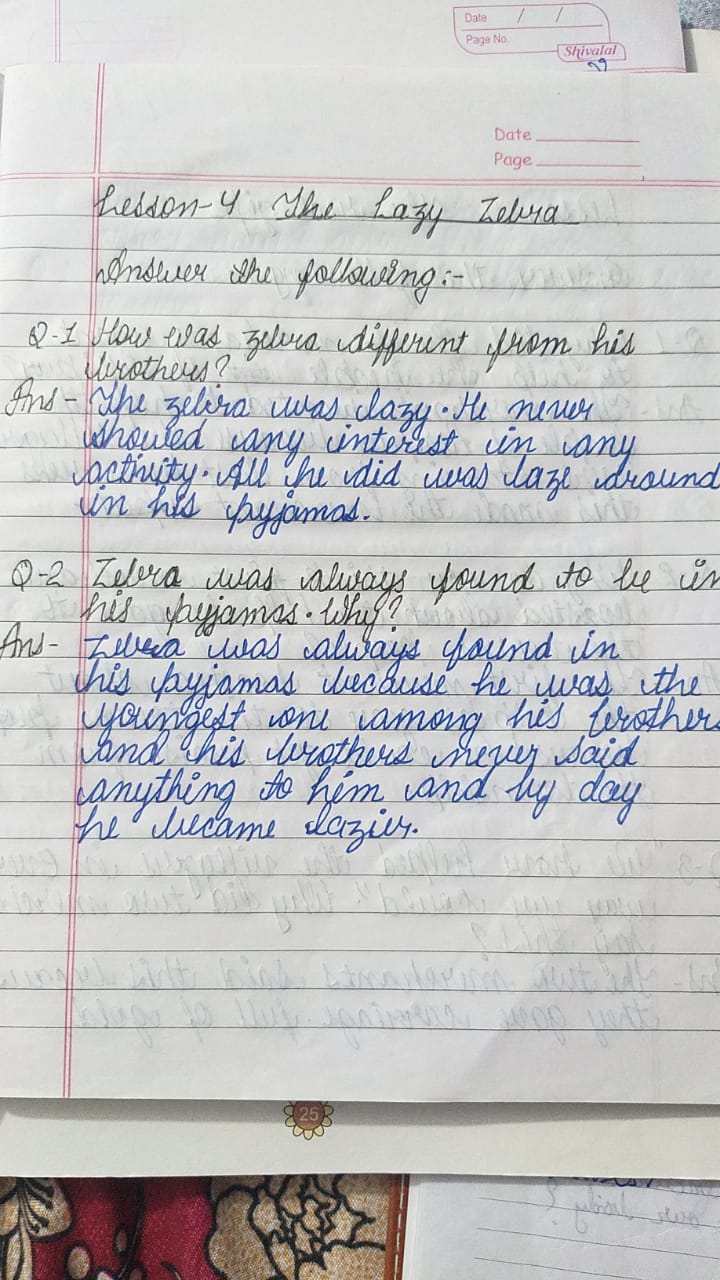 Date / /
Page No.
Shivalal
Date
Page
Lesson-4 The Lazy Zebra
Answer the following:-
Q-1 How was zebra different from his
brothers?
Ans- The zebra was lazy. He never
showed any interest in any
activity. All he did was laze around
in his pyjamas.
Q-2 Zebra was always found to be in
his pyjamas. Why?
Ans- Zebra was always found in
his pyjamas because he was the
youngest one among his brothers
and his brothers never said
anything to him and by day
he became lazier.
25
our body?